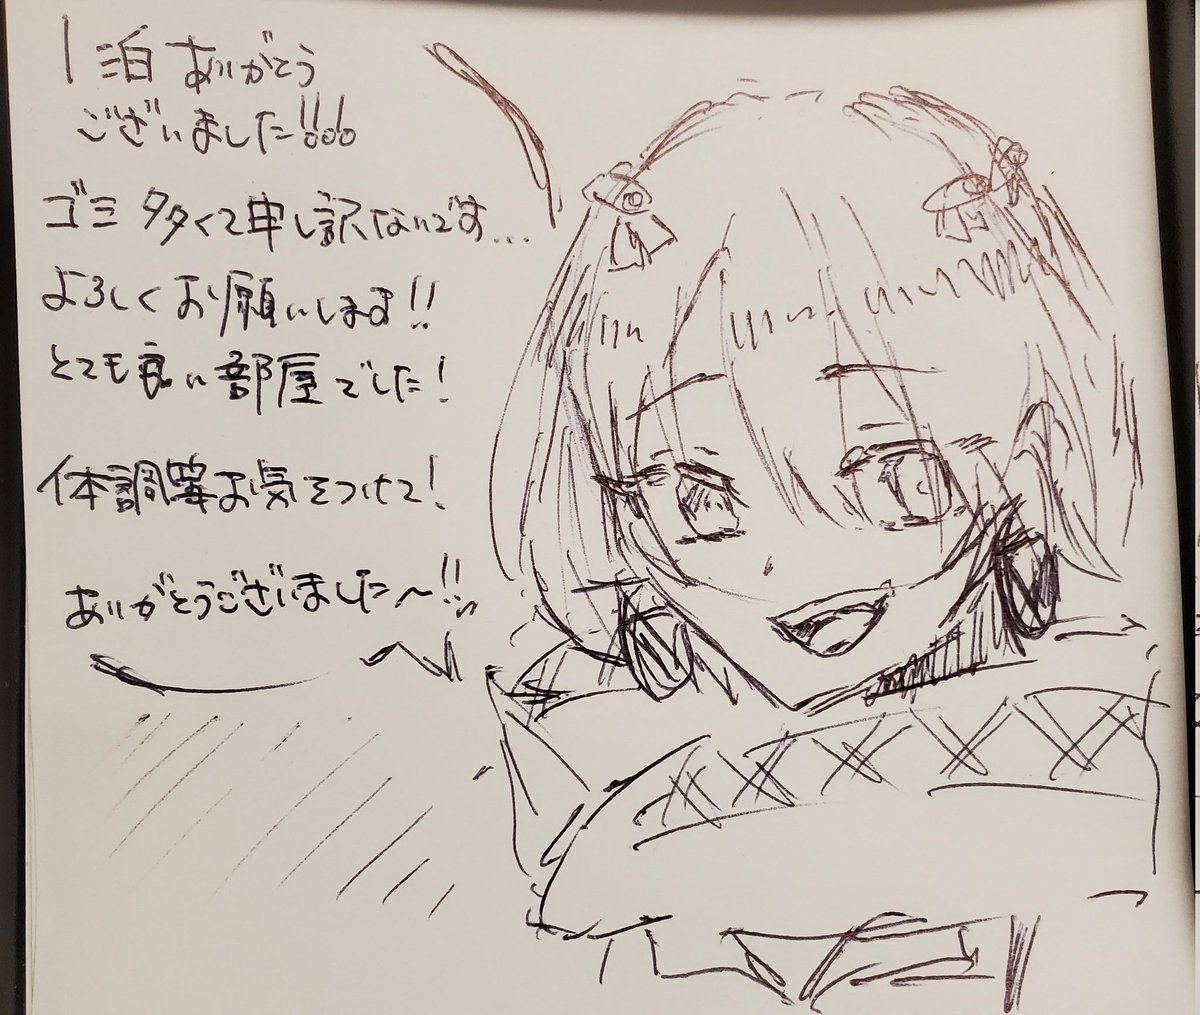 1泊ありがとう
ございました!!
ゴミ多くて申し訳ないです...
よろしくお願いします!!
とても良い部屋でした!
体調等お気をつけて!
ありがとうございました〜!!